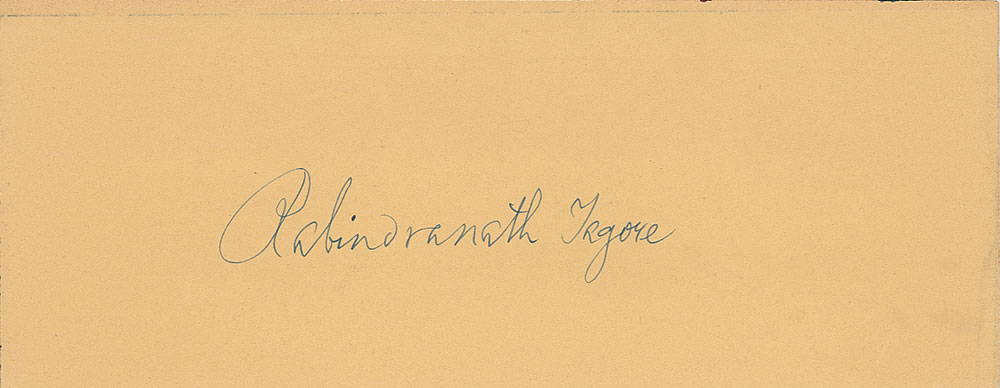 Rabindranath Tagore